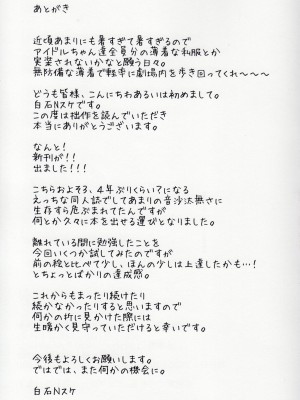 あとがき
近頃あまりにも暑すぎて暑すぎるので
アイドルちゃん達全員分の薄着な私服とか
実装されないかなと願う日々。
無防備な薄着で軽率に劇場内を歩き回ってくれ～～～
どうも皆様、こんにちわあるいは初めまして。
白石Nスケです。
この度は拙作を読んでいただき
本当にありがとうございます。
なんと!
新刊が!!
出ました!!!
こちらおよそ3、4年ぶりくらいになる
えっちな同人誌でしてあまりの音沙汰無さに
生存すら危ぶまれてたんですが
何とか久々に本を出せる運びとなりました。
離れている間に勉強したことを
今回いくつか試してみたのですが
前の絵と比べて少し、ほんの少しは上達したかも…!
とちょっとばかりの達成感。
これからもまったり続けたり
続かなかったりすると思いますので
何かの折に見かけた際には
生暖かく見守っていただけると幸いです。
今後もよろしくお願いします。
ではでは、また何かの機会に。
白石Nスケ